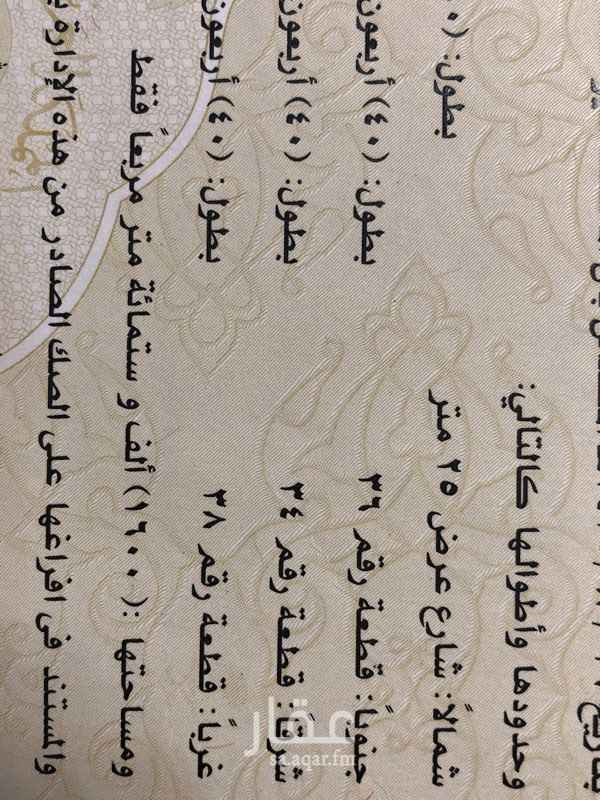 بتاريخ
وحدودها وأطوالها كالتالي:
شمالاً: شارع عرض ٢٥ متر بطول: (٠
جنوباً: قطعة رقم ٣٦ بطول: (٤٠) أربعون
شرقاً: قطعة رقم ٣٤ بطول: (٤٠) أربعون
غرباً: قطعة رقم ٣٨ بطول: (٤٠) أربعون
ومساحتها : (١٦٠٠) ألف و ستمائة متر مربعاً فقط
والمستند في افراغها على الصك الصادر من هذه الإدارة
عقار
sa.aqar.fm